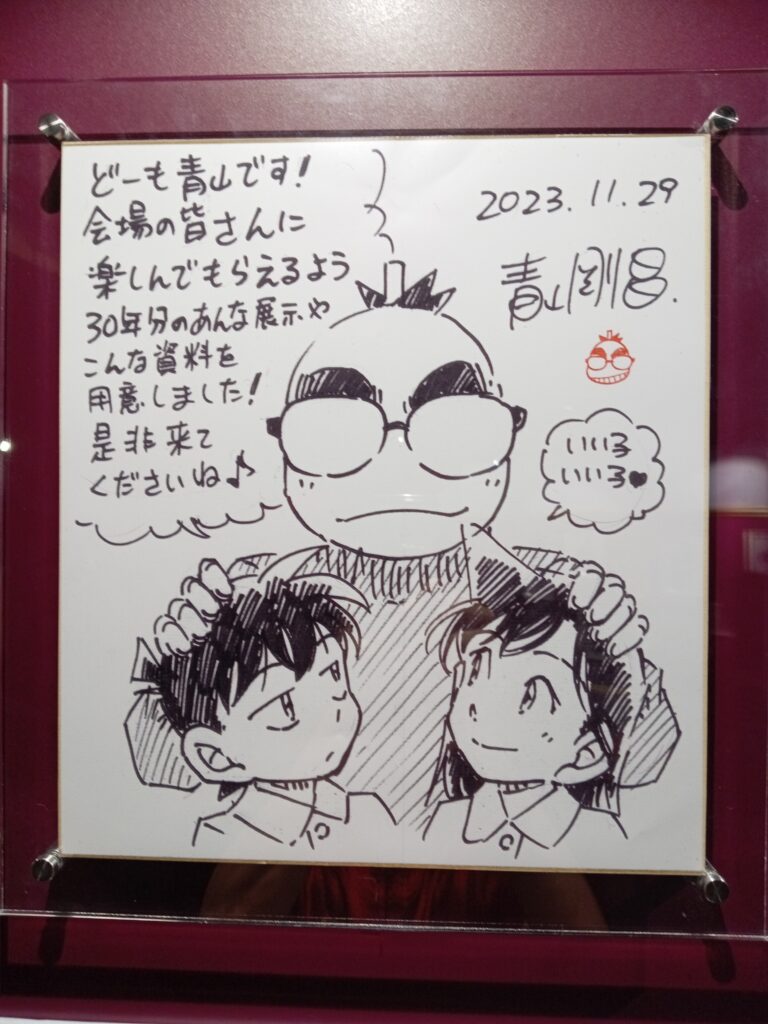 どーも青山です!
会場の皆さんに
楽しんでもらえるよう
30年分のあんな展示や
こんな資料を
用意しました!
是非来て
くださいね♪
2023.11.29
青山剛昌.
いい子
いい子♥